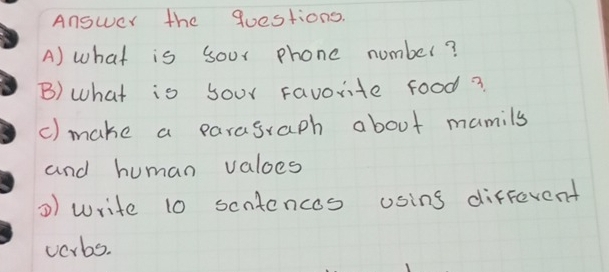 Answer the questions.
A) what is your phone number?
B) what is your favorite food?
c) make a paragraph about mamily
and human values
D) write 10 sentences using different
verbs.